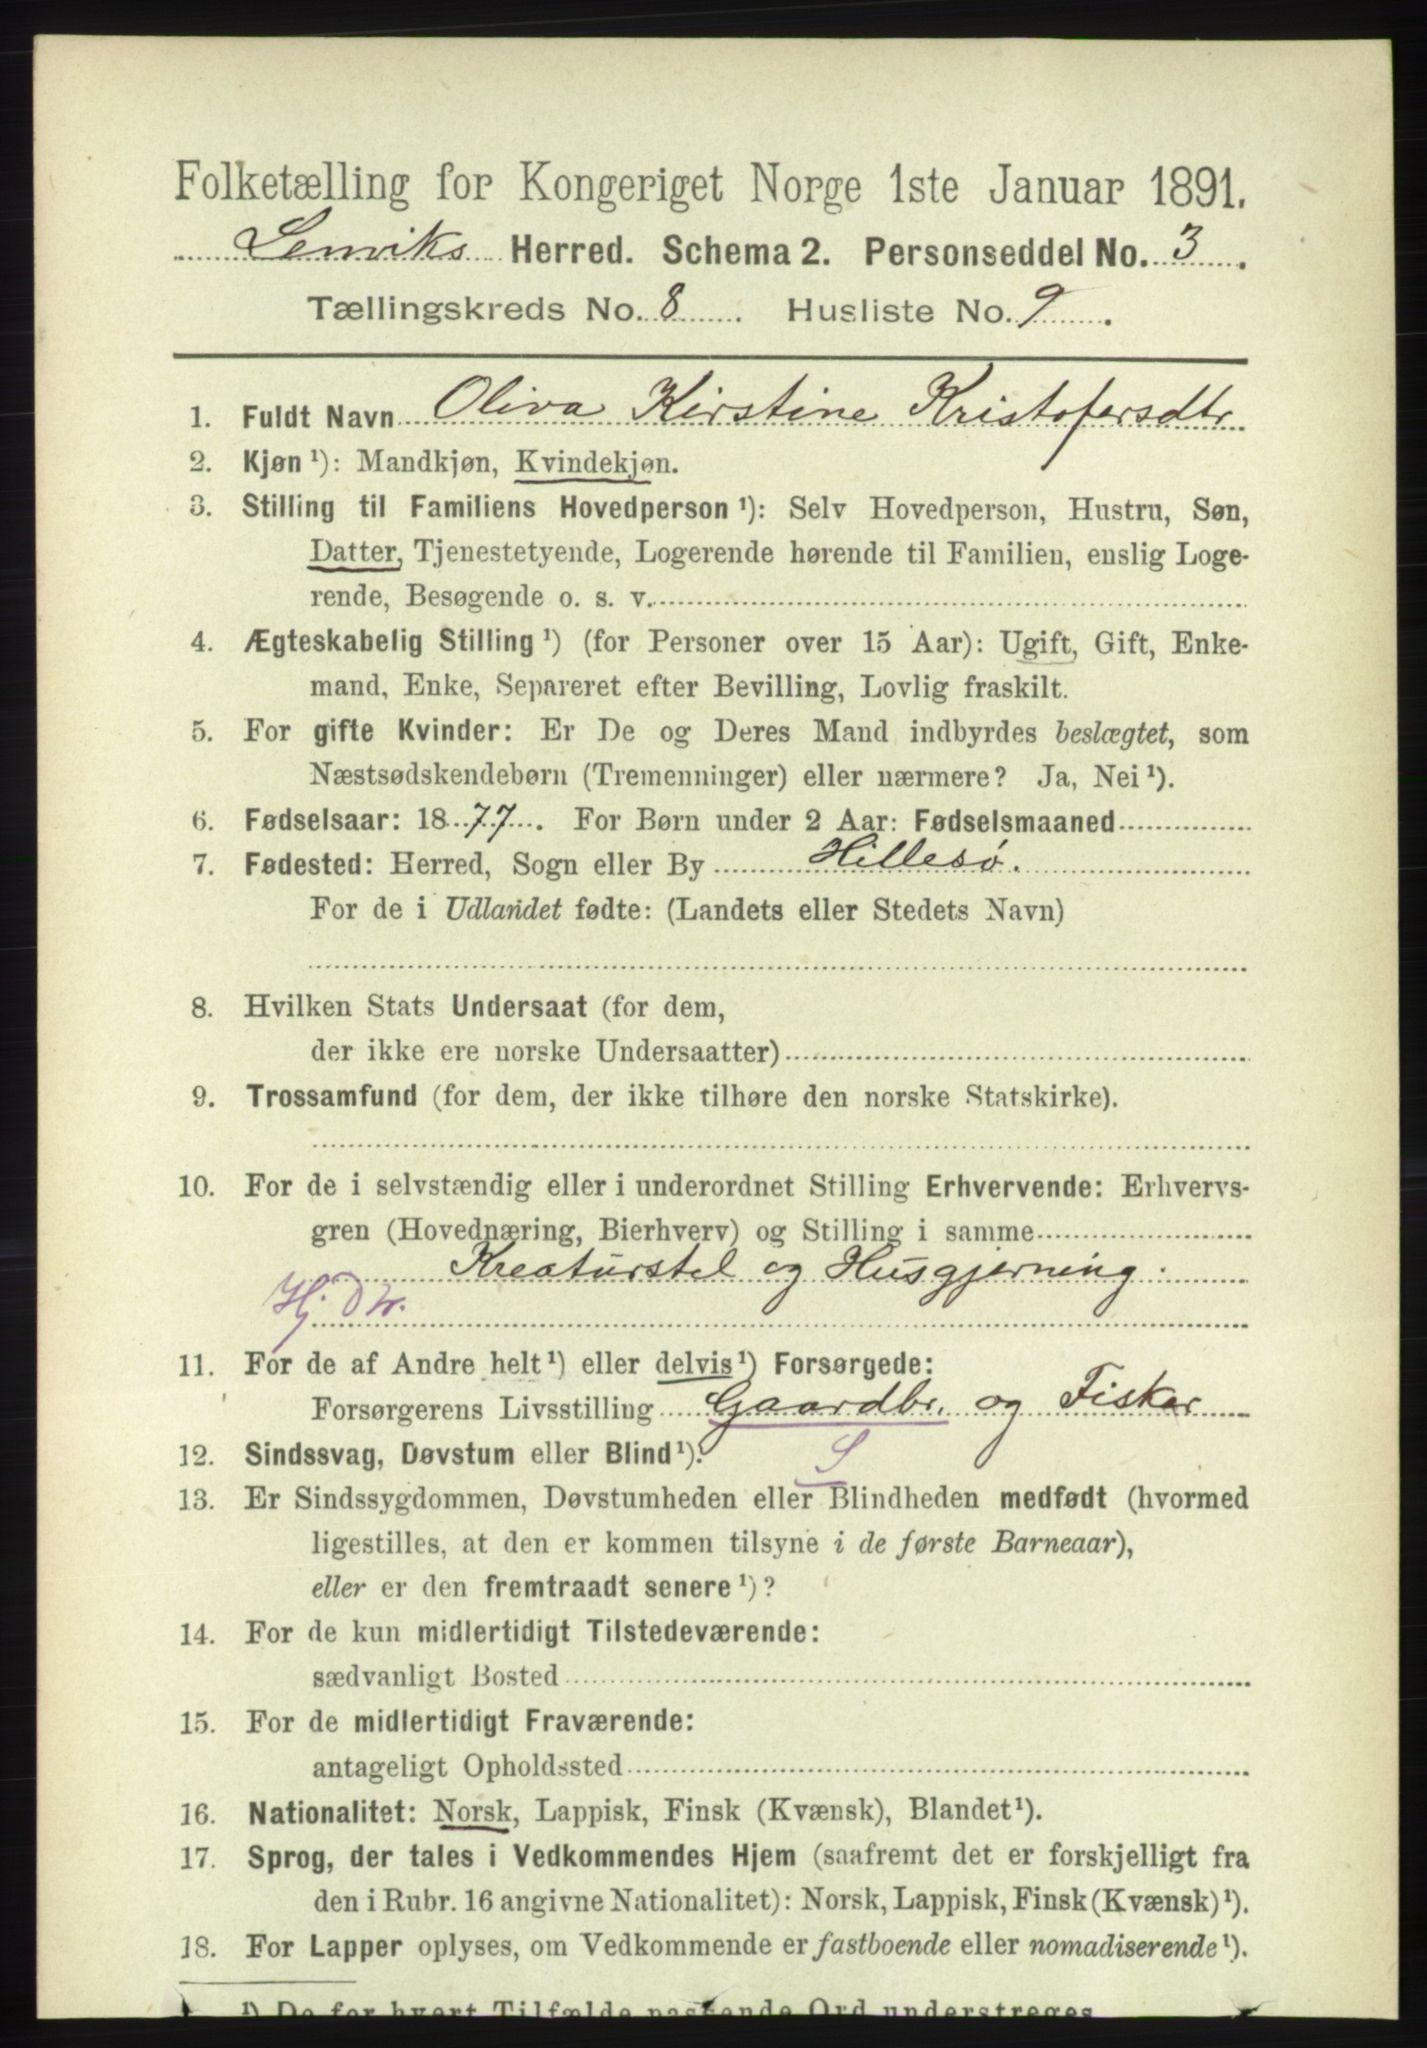 Folketælling for Kongeriget Norge 1ste Januar 1891.
Lenviks Herred. Schema 2. Personseddel No. 3.
Tællingskreds No. 8. Husliste No. 9.
1. Fuldt Navn Oliva Kirstine Kristofersdtr
2. Kjøn¹): Mandkjøn, Kvindekjøn.
3. Stilling til Familiens Hovedperson¹): Selv Hovedperson, Hustru, Søn,
Datter, Tjenestetyende, Logerende hørende til Familien, enslig Loge-
rende, Besøgende o. s. v.
4. Ægteskabelig Stilling¹) (for Personer over 15 Aar): Ugift, Gift, Enke-
mand, Enke, Separeret efter Bevilling, Lovlig fraskilt.
5. For gifte Kvinder: Er De og Deres Mand indbyrdes beslægtet, som
Næstsødskendebørn (Tremenninger) eller nærmere? Ja, Nei¹).
6. Fødselsaar: 1877. For Børn under 2 Aar: Fødselsmaaned
7. Fødested: Herred, Sogn eller By Hillesø.
For de i Udlandet fødte: (Landets eller Stedets Navn)
8. Hvilken Stats Undersaat (for dem,
der ikke ere norske Undersaatter)
9. Trossamfund (for dem, der ikke tilhøre den norske Statskirke).
10. For de i selvstændig eller i underordnet Stilling Erhvervende: Erhvervs-
gren (Hovednæring, Bierhverv) og Stilling i samme
Kreaturstel og Husgjerning.
Hj Dtr.
11. For de af Andre helt¹) eller delvis¹) Forsørgede:
Forsørgerens Livsstilling Gaardbr. og Fisker
12. Sindssvag, Døvstum eller Blind¹). S
13. Er Sindssygdommen, Døvstumheden eller Blindheden medfødt (hvormed
ligestilles, at den er kommen tilsyne i de første Barneaar),
eller er den fremtraadt senere¹)?
14. For de kun midlertidigt Tilstedeværende:
sædvanligt Bosted
15. For de midlertidigt Fraværende:
antageligt Opholdssted
16. Nationalitet: Norsk, Lappisk, Finsk (Kvænsk), Blandet¹).
17. Sprog, der tales i Vedkommendes Hjem (saafremt det er forskjelligt fra
den i Rubr. 16 angivne Nationalitet): Norsk, Lappisk, Finsk (Kvænsk)¹).
18. For Lapper oplyses, om Vedkommende er fastboende eller nomadiserende¹).
¹) De for hvert Tilfælde passende Ord understreges.